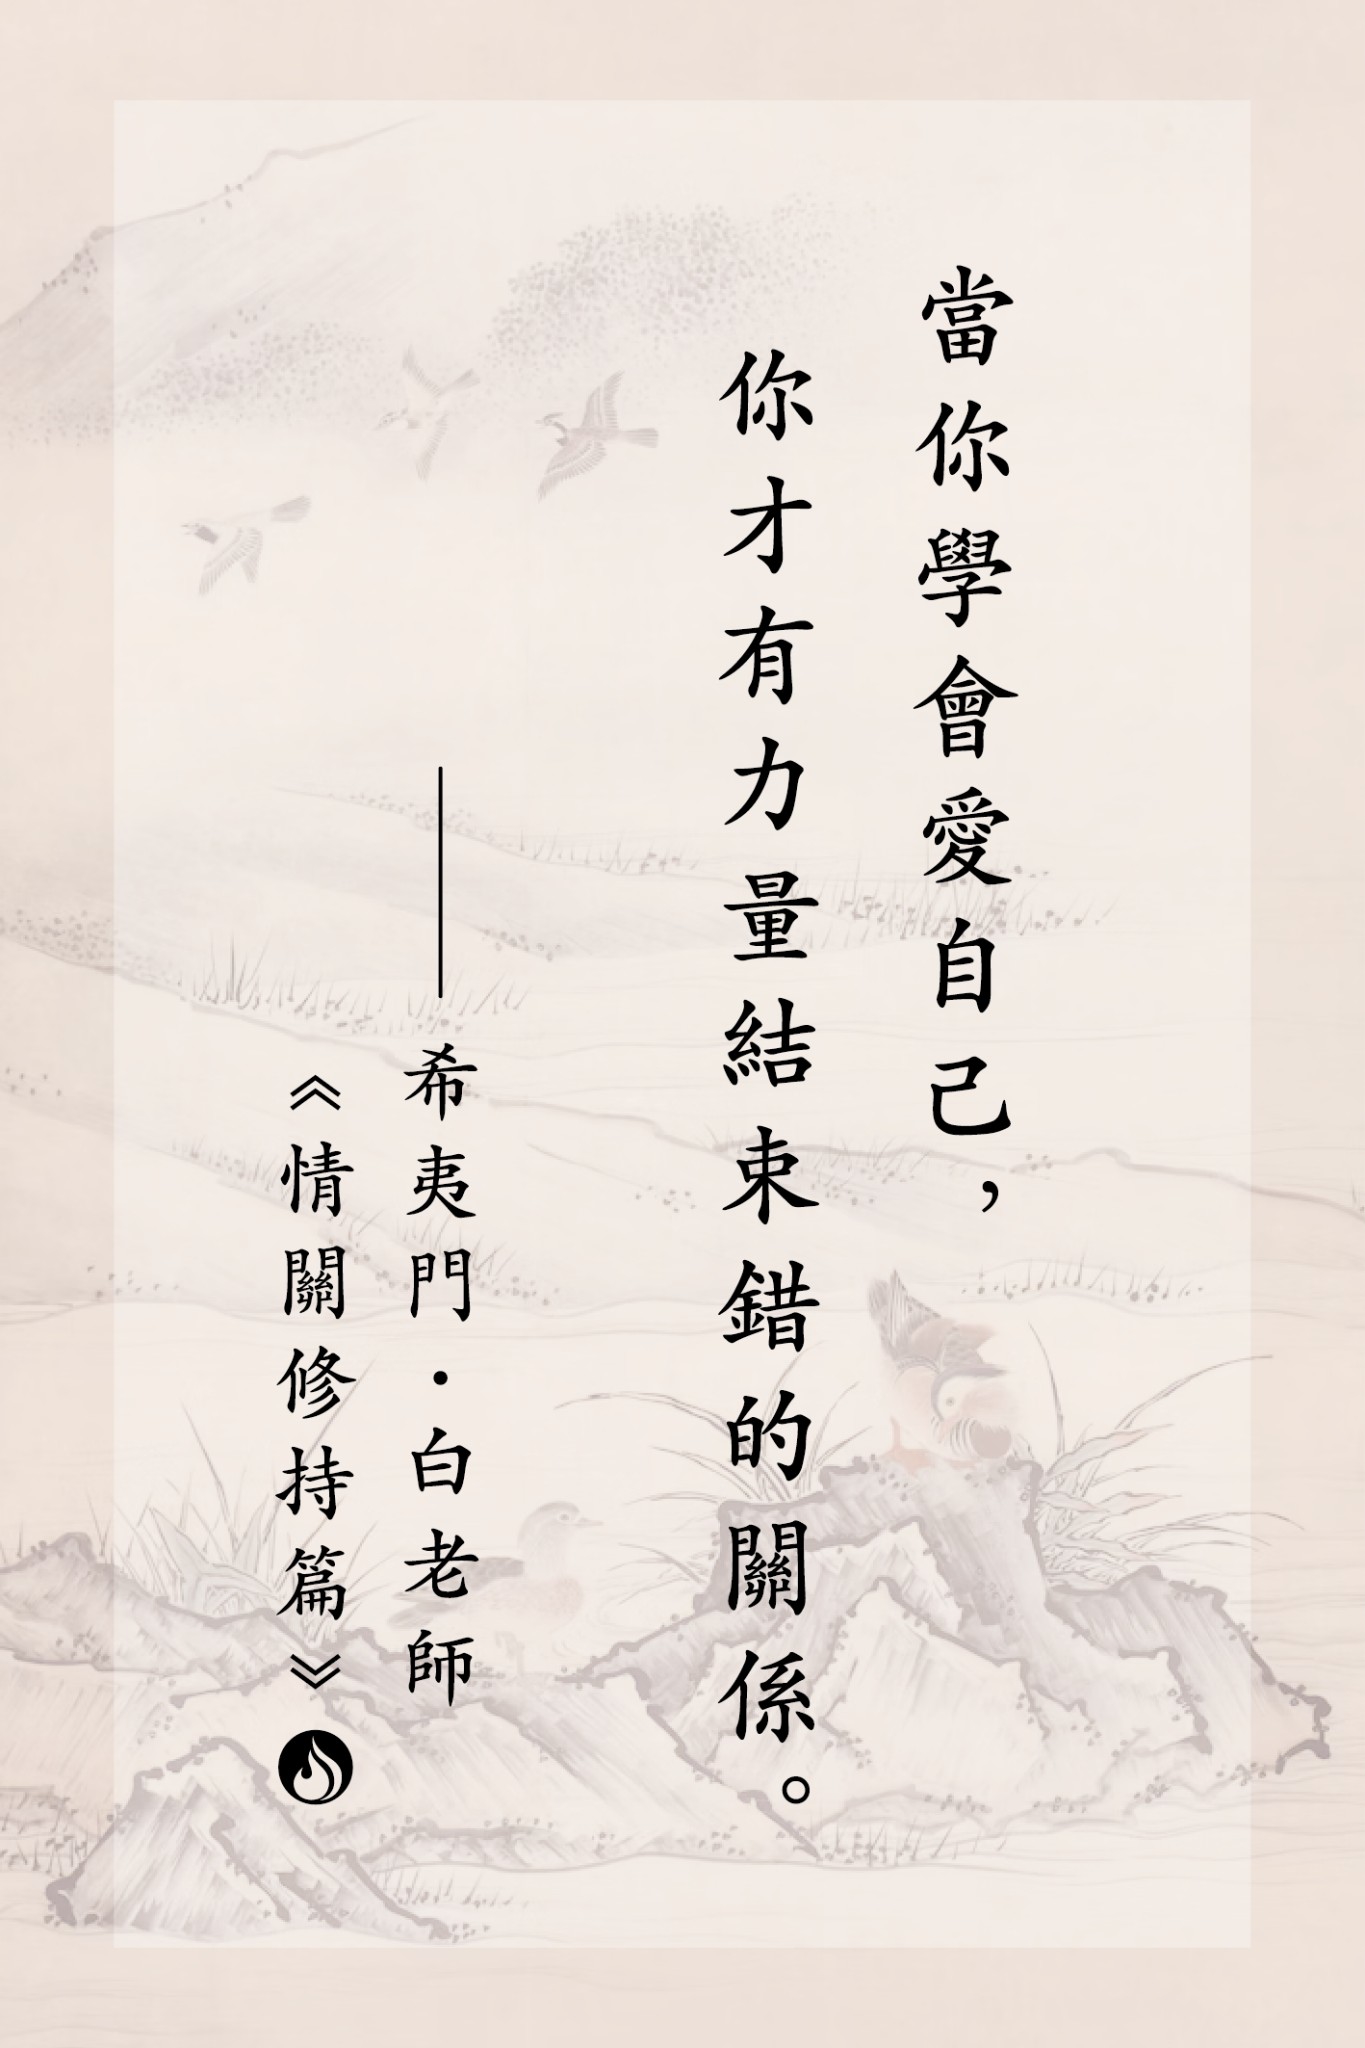 當你學會愛自己，
你才有力量結束錯的關係。
——希夷門・白老師
《情關修持篇》